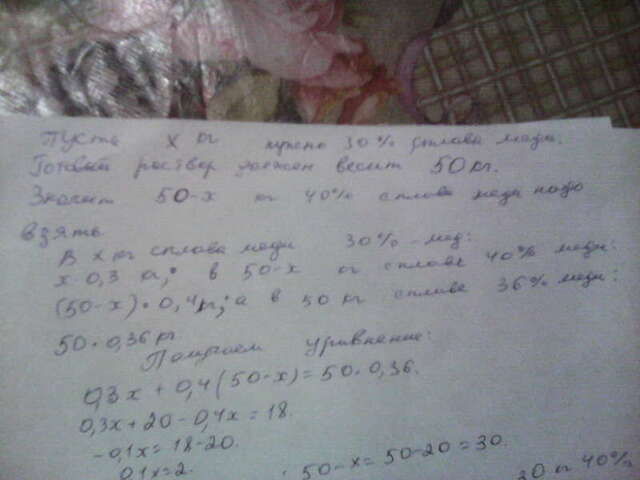 Пусть x кг нужно 30% сплава меди.
Готовый раствор должен весит 50 кг.
Значит 50-x кг 40% сплава меди надо
взять
В x кг сплава меди 30% - мед:
x·0,3 кг,; в 50-x кг сплаве 40% меди:
(50-x)·0,4кг; а в 50 кг сплаве 36% меди:
50·0,36 кг
Получаем уравнение:
0,3x + 0,4(50-x) = 50·0,36.
0,3x + 20 - 0,4x = 18.
-0,1x = 18-20.
0,1x = 2.
50-x = 50-20 = 30.
30 кг 40%